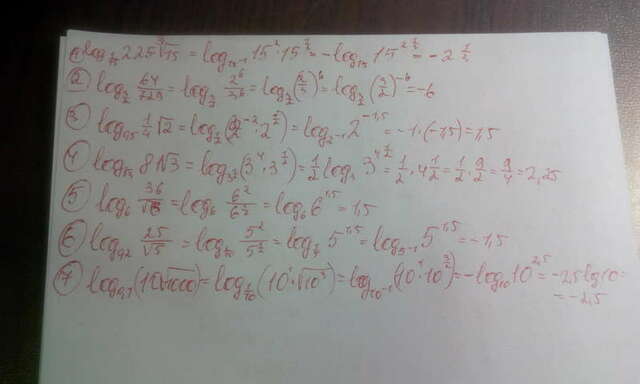 ① log_{1/15} 225∛15 = log_{15^{-1}} 15² · 15^{1/3} = -log_{15} 15^{2 1/3} = -2 1/3
② log_{3/2} 64/729 = log_{3/2} 2⁶/3⁶ = log_{3/2} (2/3)⁶ = log_{3/2} (3/2)^{-6} = -6
③ log_{0,5} 1/4 √2 = log_{1/2} (2^{-2} · 2^{1/2}) = log_{2^{-1}} 2^{-1,5} = -1 · (-1,5) = 1,5
④ log 81√3 = log (3⁴ · 3^{1/2}) = 1/2 log 3^{4 1/2} = 1/2 · 4 1/2 = 1/2 · 9/2 = 9/4 = 2,25
⑤ log₆ 36/√6 = log₆ 6²/6^{1/2} = log₆ 6^{1,5} = 1,5
⑥ log_{0,2} 25/√5 = log 5²/5^{1/2} = log 5^{1,5} = log_{5^{-1}} 5^{1,5} = -1,5
⑦ log_{0,1} (10√1000) = log_{1/10} (10¹ · √10³) = log_{10^{-1}} (10¹ · 10^{3/2}) = -log₁₀ 10^{2,5} = -2,5 lg10 =
= -2,5